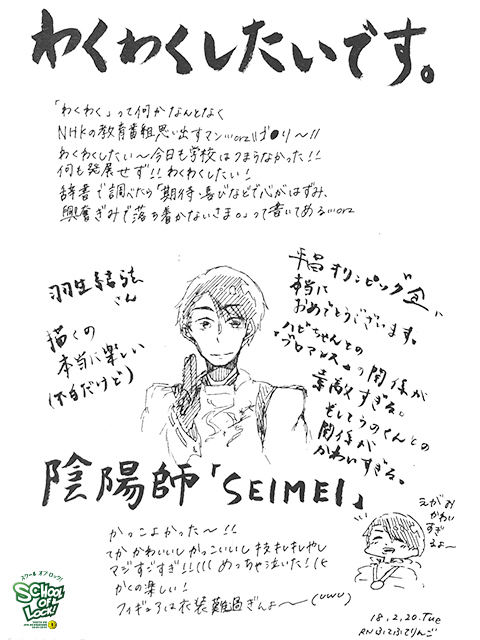 わくわくしたいです。
「わくわく」って何かなんとなく
NHKの教育番組思い出すマン…orz!!ゴ●リ～!!
わくわくしたい～今日も学校はつまらなかった!!
何も発展せず!!わくわくしたい!
辞書で調べたら「期待・喜びなどで心がはずみ、
興奮ぎみで落ち着かないさま。」って書いてある…orz
平昌オリンピック"金"
本当に
おめでとうございます。
ハビちゃんとの
「ブロマンス」の関係が
素敵すぎる。
そしてうのくんとの
関係が
かわいすぎる。
羽生結弦
さん
描くの
本当に楽しい
(下手だけど)
陰陽師「SEIMEI」
かっこよかった～!!
てかかわいいしかっこいいし技キレキレやし
マジすごすぎ!!(((めっちゃ泣いた!(
かくの楽しい!
フィギュアは衣装難過ぎんよ～(uwu)
えがお
かわい
すぎ
るよ～
18.2.20.Tue
RNふてふてりんご
スクール オブ ロック!
SCHOOL OF LOCK!